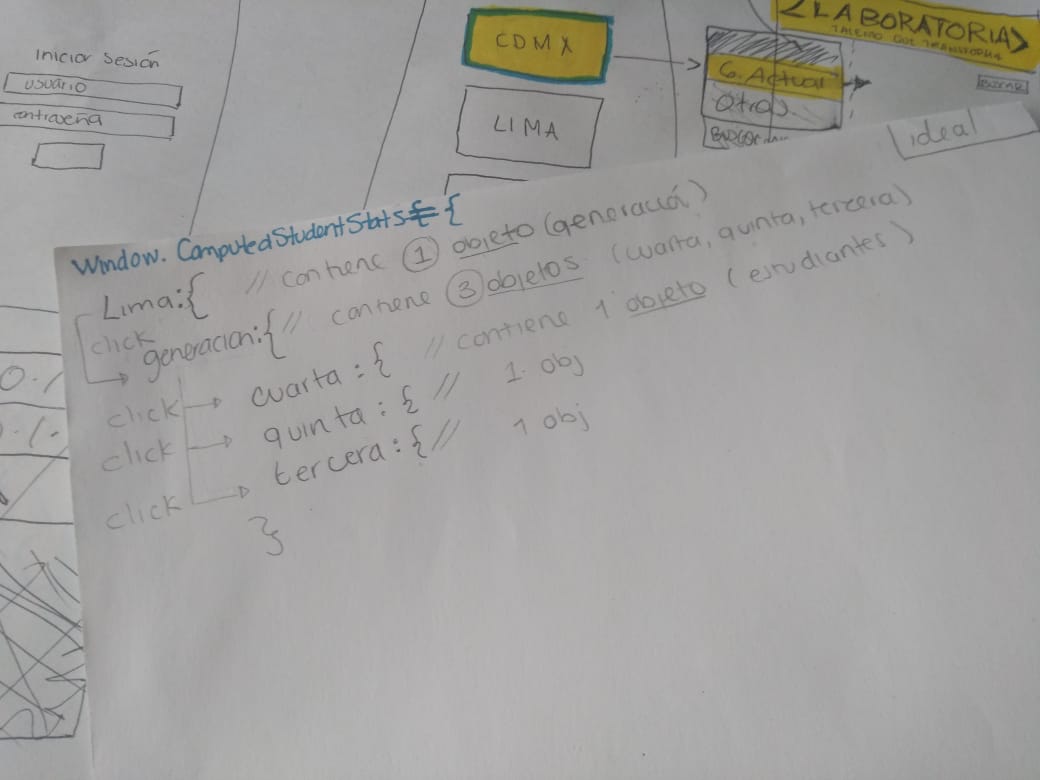 Iniciar Sesión
usuario
contraseña
CDMX
LIMA
G. Actual
Otras.
<LABORATORIA>
TALENTO QUE TRANSFORMA
ideal
Window. ComputedStudentStats = {
Lima:{ // contiene 1 objeto (generación)
click
generacion:{ // contiene 3 objetos (cuarta, quinta, tercera)
click cuarta : { // contiene 1 objeto (estudiantes)
click quinta : { // 1 obj
click tercera : { // 1 obj
}